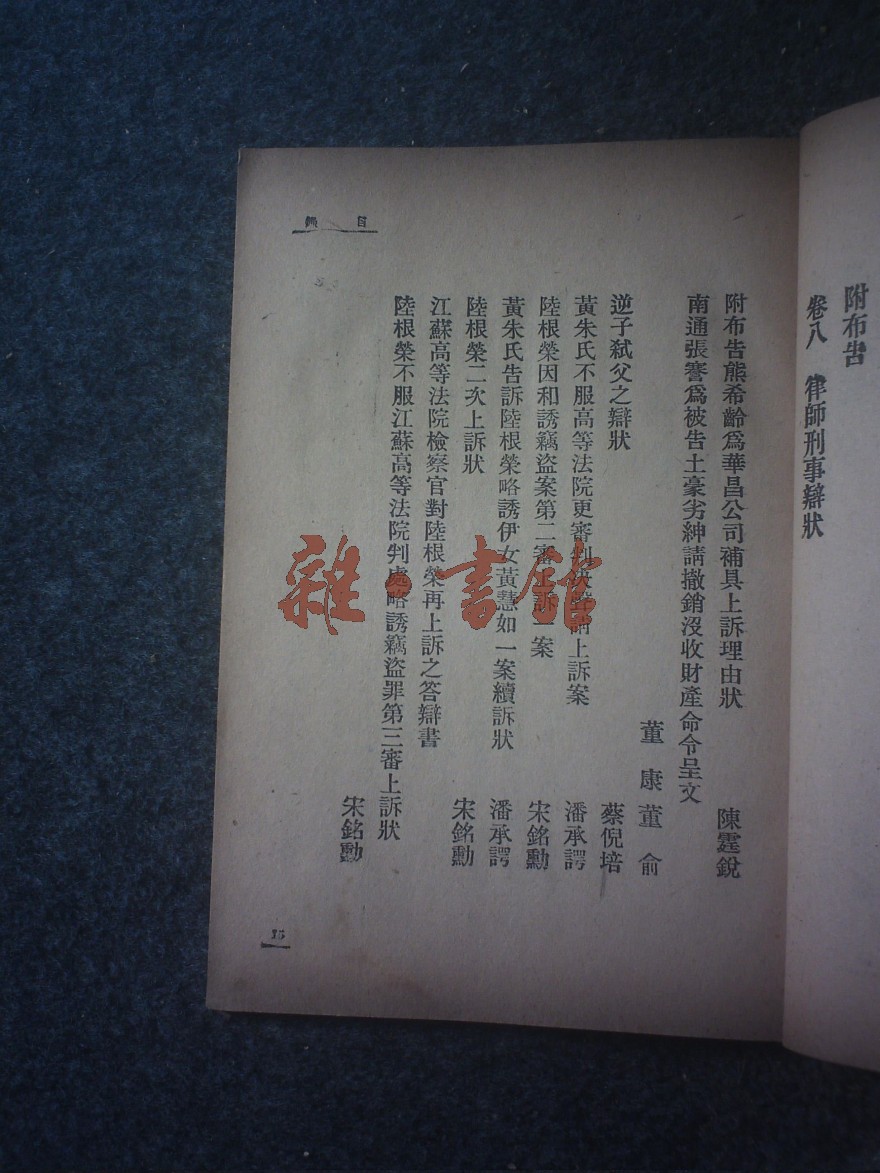 附布告
卷八　律師刑事辯狀
目　錄
附布告熊希齡爲華昌公司補具上訴理由狀　陳霆銳
南通張謇爲被告土豪劣紳請撤銷沒收財產命令呈文
董　康　董　俞
逆子弒父之辯狀　蔡倪培
黃朱氏不服高等法院更審判決聲請上訴案　潘承諤
陸根榮因和誘竊盜案第二審上訴一案　宋銘勳
黃朱氏告訴陸根榮略誘伊女黃慧如一案續訴狀　潘承諤
陸根榮二次上訴狀　宋銘勳
江蘇高等法院檢察官對陸根榮再上訴之答辯書
陸根榮不服江蘇高等法院判處略誘竊盜罪第三審上訴狀
宋銘勳
雜·書館